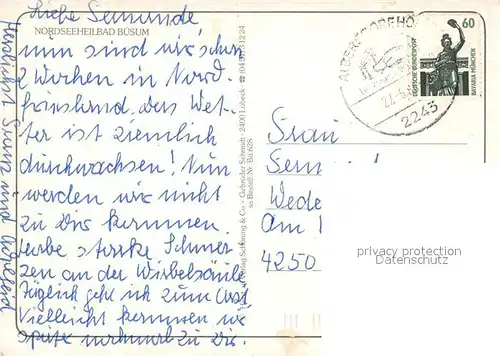 Liebe Semunde
NORDSEEHEILBAD BÜSUM
nun sind wir schon
2 Wochen in Nord-
friesland. Das Wet-
ter ist ziemlich
durchwachsen! Nun
werden wir nicht
zu Dir kommen.
habe starke Schmer-
zen an der Wirbelsäule
Täglich geht ich zum Arzt.
Vielleicht kommen wir
später nochmal zu Dir.
Herzlichst Franz und
Schöning & Co · Gebrüder Schmidt · 2400 Lübeck · ☎ (0451) 531224
Bestell-Nr. Bü 628
ALBERSDORF
2243
60
DEUTSCHE BUNDESPOST
BAVARIA MÜNCHEN
Frau
Sem
Wede
Am
4250
privacy protection
Datenschutz